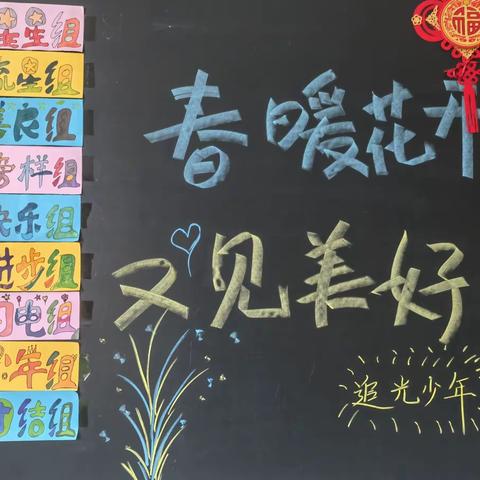 星星组
流星组
善良组
榜样组
快乐组
进步组
闪电组
少年组
团结组
春暖花开
又见美好
追光少年
福